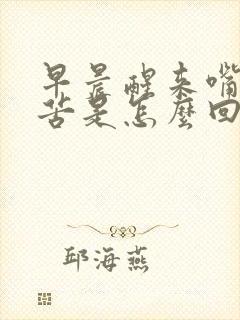 早晨醒来嘴
苦是怎麼回
邱海燕